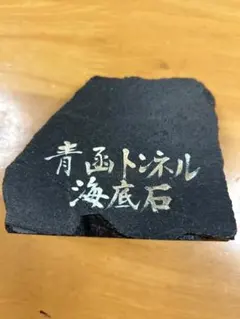 青函トンネル
海底石